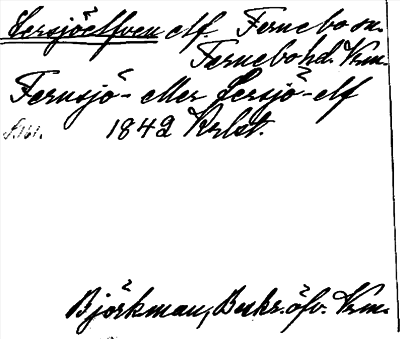 Lersjöelfven elf. Fernebo sn.
Fernebo hd. Vrm.
Fernsjö- eller Lersjö-elf
1842 Krlst.
Björkman, Beskr. öfv. Vrm.